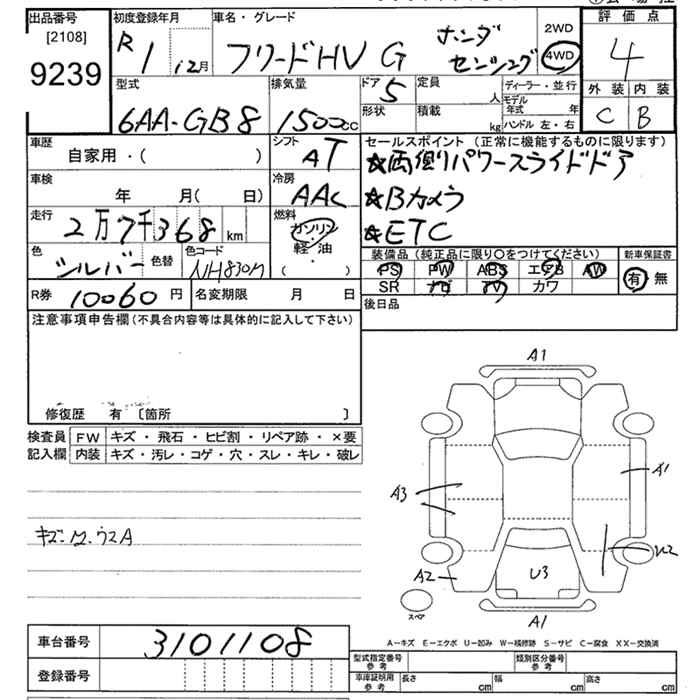 出品番号 初度登録年月 車名・グレード 評価点
[2108]
9239
R1 12月 フリードHV G ホンダ センシング 2WD 4WD 4
型式 排気量 ドア 定員 ディーラー・並行 外装 内装
6AA-GB8 1500cc 5 人 モデル年式 年 C B
形状 積載 kg ハンドル 左・右
車歴 シフト セールスポイント(正常に機能するものに限ります)
自家用・( ) AT ★両側パワースライドドア
車検 冷房
年 月( 日) AAC ★Bカメラ
走行 燃料
2万7千368km ガソリン ★ETC
軽・油
( )
色 色替 色コード 装備品(純正品に限り○をつけてください) 新車保証書
シルバー NH830M PS PW ABS エアB AW 有 無
SR ナビ TV カワ
R券 10060円 名変期限 月 日 後日品
注意事項申告欄(不具合内容等は具体的に記入して下さい)
修復歴 有 〔箇所 〕
検査員 FW キズ・飛石・ヒビ割・リペア跡・×要
記入欄 内装 キズ・汚レ・コゲ・穴・スレ・キレ・破レ
A1
A1
A3
U2
A2
U3
スペア
A1
A-キズ E-エクボ U-凹み W-補修跡 S-サビ C-腐食 XX-交換済
車台番号 3101108
登録番号
型式指定番号 参考 類別区分番号 参考
車庫証明用 参考 長さ cm 幅 cm 高さ cm